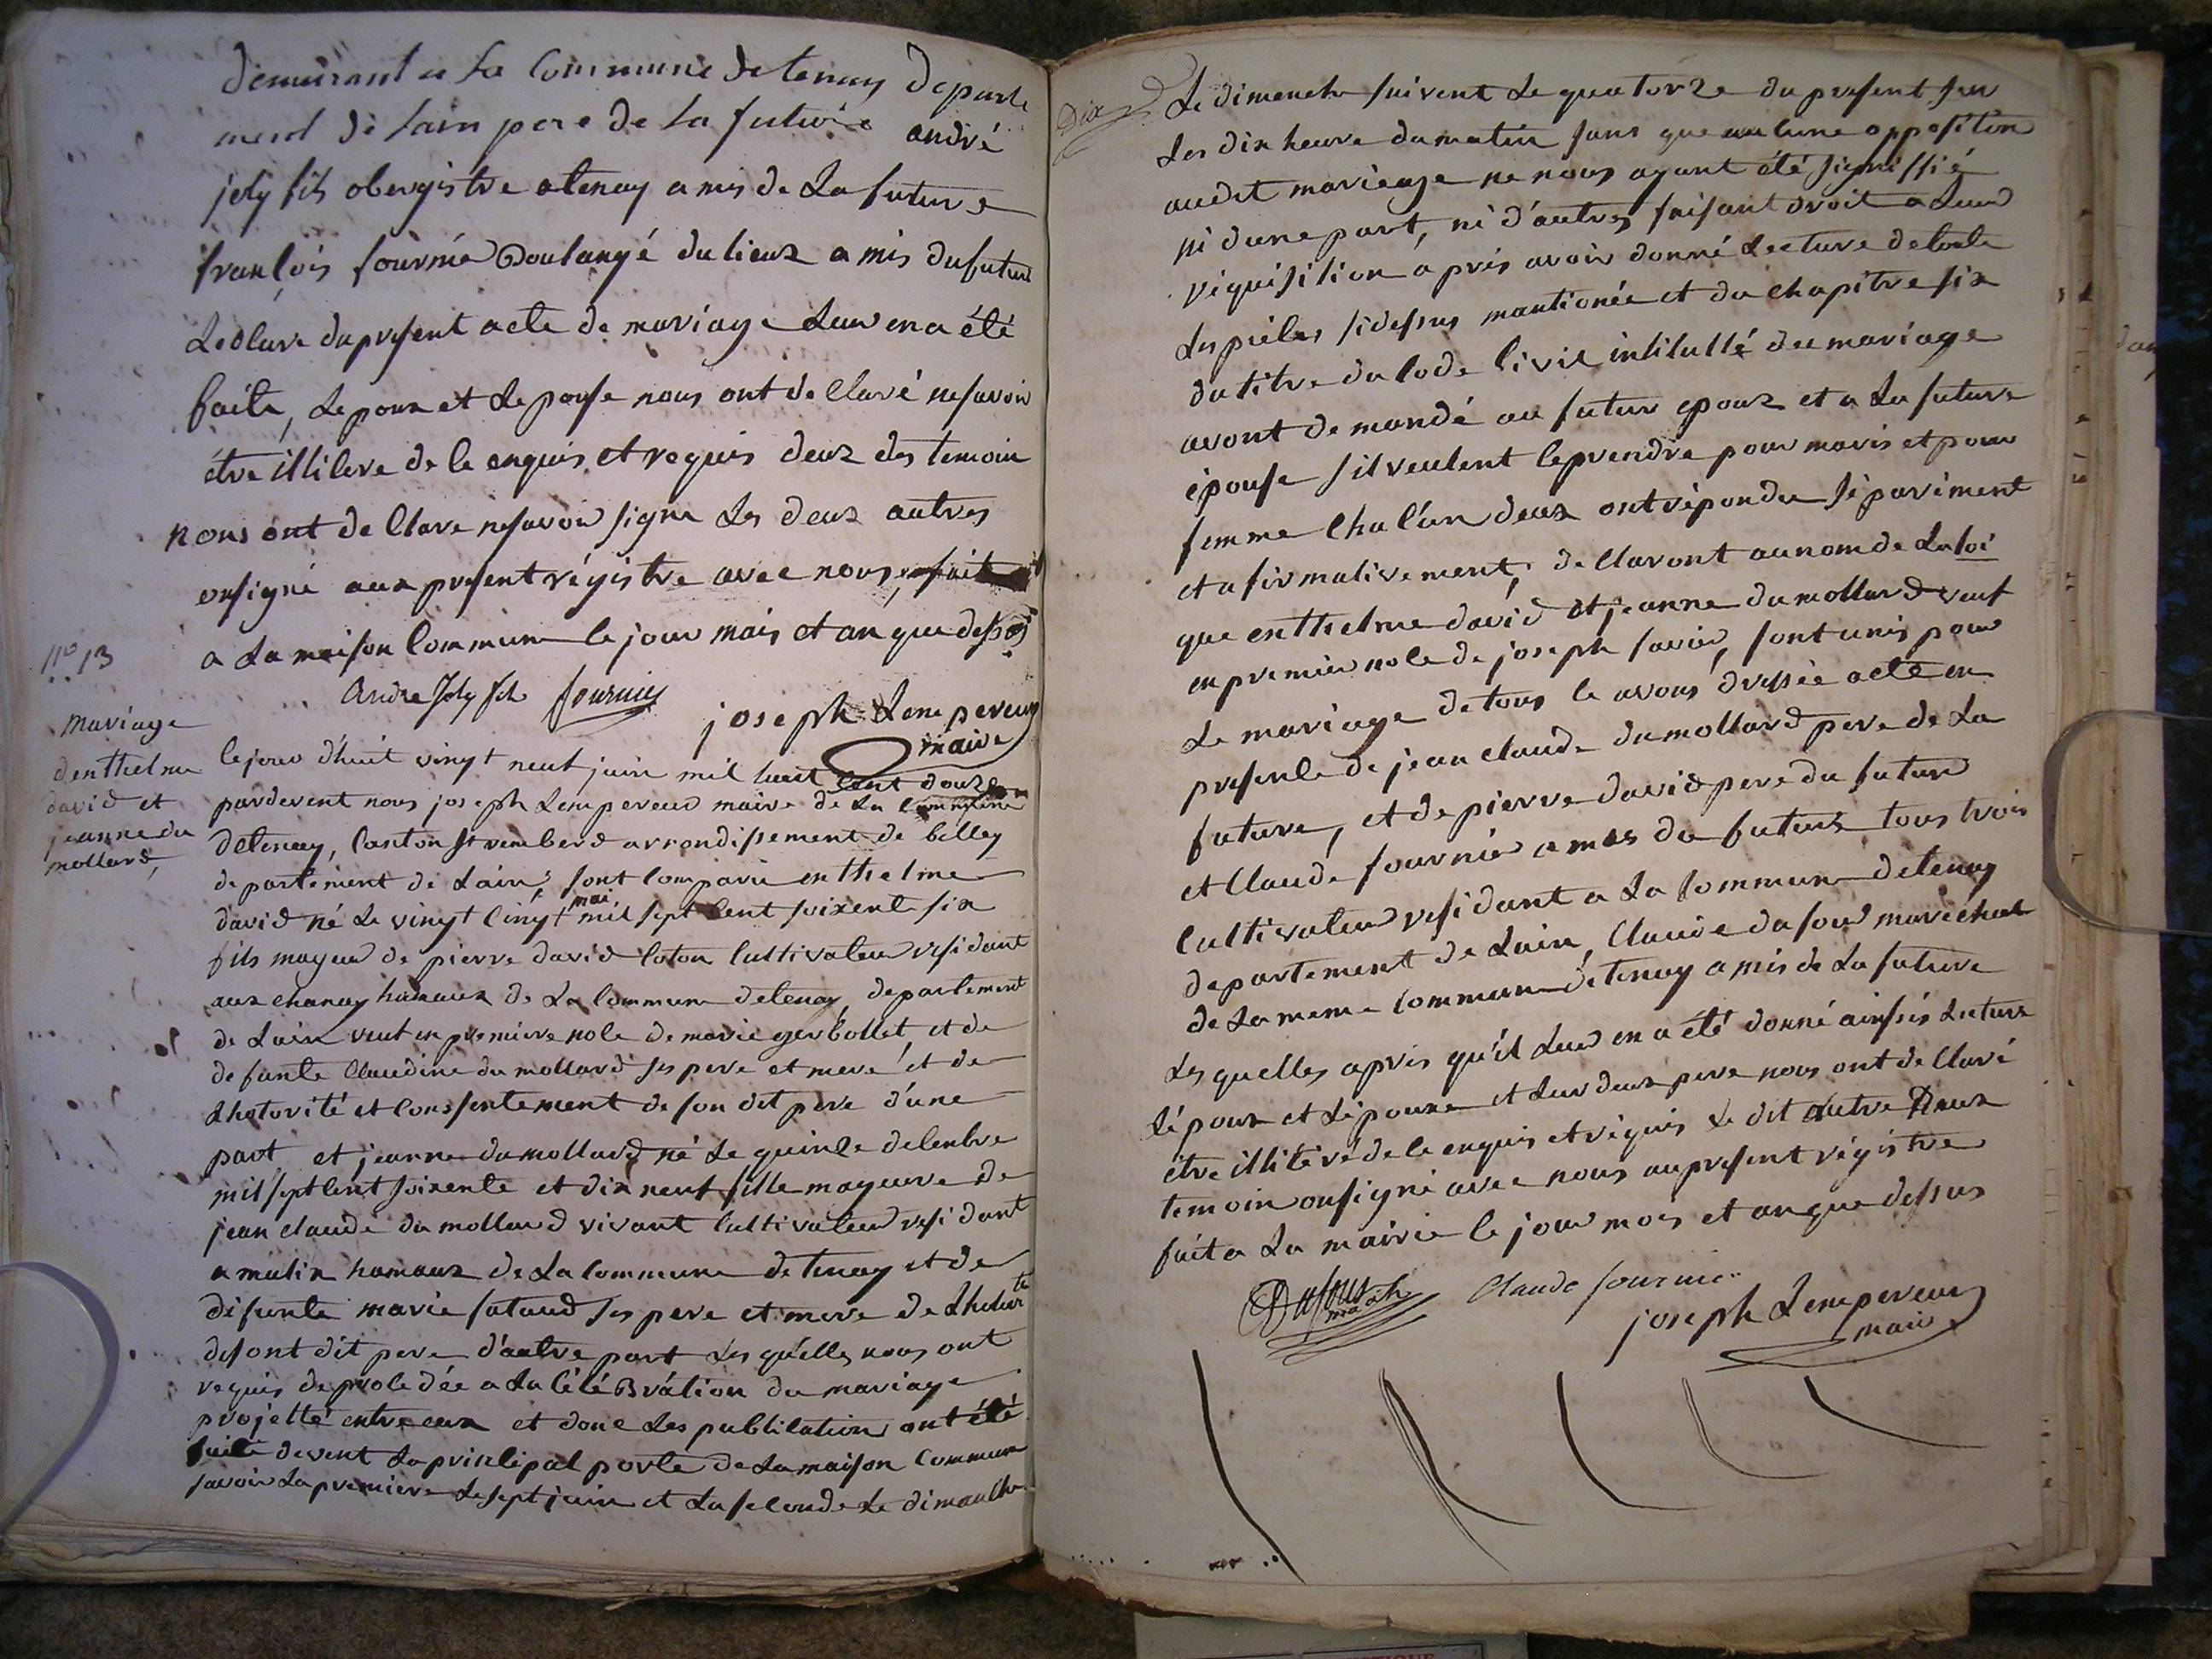 demeurant a La Commune de tenay departe
ment de Lain pere de La future andré
joly fils obergistre a tenay amis de La future
françois fournié Boulangé du lieux amis du futur
Lecture du present acte de mariage Leur en a été
faite, Lepoux et Lepouse nous ont de Claré ne savoir
être illitere de ce enquis et requis deux des temoin
nous ont de Clare ne savoir signe Les deux autres
onsigné aux present régistre avec nous, fait
a La maison Commune le jour mois et an que dessus
andre Joly fils fournier
joseph Lempereur
maire
no 13
mariage
denthelme
david et
jeanne du
mollard,
le jour d'huit vingt neuf juin mil huit Cent douze
pardevent nous joseph Lempereur maire de La Commune
detenay, Canton St rembert arrondissement de belley
departement de Lain, sont Comparu enthelme
david né Le vingt Cinq mai mil sept Cent soixente six
fils mageur de pierre david Coton Cultivateur residant
aux chanay hameaux de La Commune detenay, departement
de Lain veuf en premiere noCe de marie gerbollet, et de
defunte Claudine du mollard ses pere et mere et de
Lhotorité et Conssentement de son dit pere d'une
part et jeanne dumollard né Le quinze delembre
mil sept Cent soixente et dix neuf fille mageure de
jean claude du mollard vivant Cultivateur residant
a malix hameaux de La Commune de tenay et de
defunte marie sataud ses pere et mere de Lhotorté
desont dit pere d'autre part Les quélles nous ont
requis de proledée a La CéléBrátion du mariage
projetté entre eux et donc Les publiCation ont été
faite devent La prinCipal porte de La maison Commune
savoir La premiere Le sept juin et La seConde Le dimanche
Dix
Le dimenche suivent Le quatorze du present sur
Les dix heure du matin sans que auCune opposition
audit mariage ne nous ayant été signiffié
ni dune part, ni d'autres faisant droit a Leur
réquisition apris avoir donné LeCture de toute
Les pieCes sidessus mantionée et du chapitre six
du titre du Code Civil intitullé du mariage
avont demandé au futur epoux et a La future
épouse sil veulent se prendre pour maris et pour
femme ChaCun deux ont répondu séparément
et afirmativement, de Claront au nom de La loi
que enthelme david et jeanne dumollard veuf
en premier noCe de joseph savin, sont unis pour
Le mariage de tous Ce avons dressée acte en
presenCe de jean claude dumollard pere de La
future, et de pierre david pere du future
et Claude fournier amis du futur tous trois
Cultivateur residant a La Commune detenay
departement de Lain, Claude dufour maréchal
de La meme Commune de tenay amis de La future
Les quelles apris qu'il Leur en a été donné ainssis LeCture
Lépoux et Lépouse et Leur deux pere nous ont de Claré
être illitéré de Ce enquis et réquis Le dit autre Deux
temoin onsigné avec nous au present régistre
fait a La mairie le jour mois et an que dessus
Dufour
Claude fournier
joseph Lempereur
maire